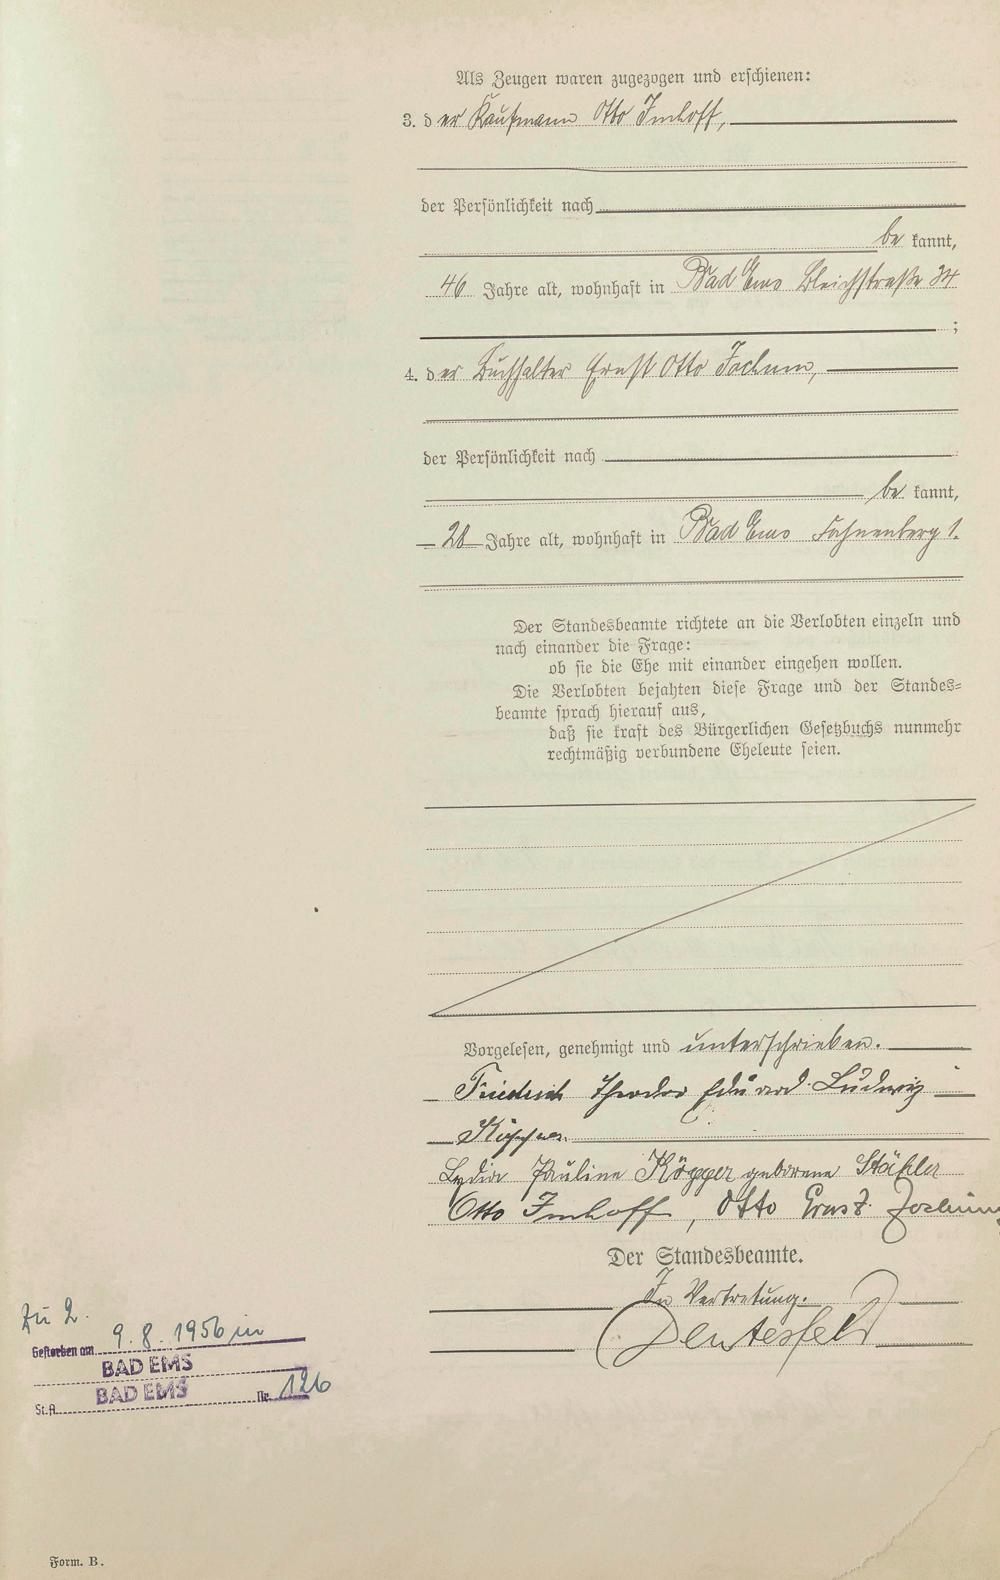 Als Zeugen waren zugezogen und erschienen:
3. der Kaufmann Otto Imhoff,
der Persönlichkeit nach
be kannt,
46 Jahre alt, wohnhaft in Bad Ems Bleichstraße 34
;
4. der Buchhalter Ernst Otto Jochum,
der Persönlichkeit nach
be kannt,
28 Jahre alt, wohnhaft in Bad Ems Fahnenberg 1.
Der Standesbeamte richtete an die Verlobten einzeln und
nach einander die Frage:
ob sie die Ehe mit einander eingehen wollen.
Die Verlobten bejahten diese Frage und der Standes=
beamte sprach hierauf aus,
daß sie kraft des Bürgerlichen Gesetzbuchs nunmehr
rechtmäßig verbundene Eheleute seien.
Vorgelesen, genehmigt und unterschrieben.
Friedrich Theodor Eduard Ludwig
Lydia Pauline geborene
Otto Imhoff, Otto Ernst Jochum
Der Standesbeamte.
In Vertretung.
Zu 2.
Gestorben am 9.8.1956 in
BAD EMS
St.A. BAD EMS Nr. 126
Form. B.